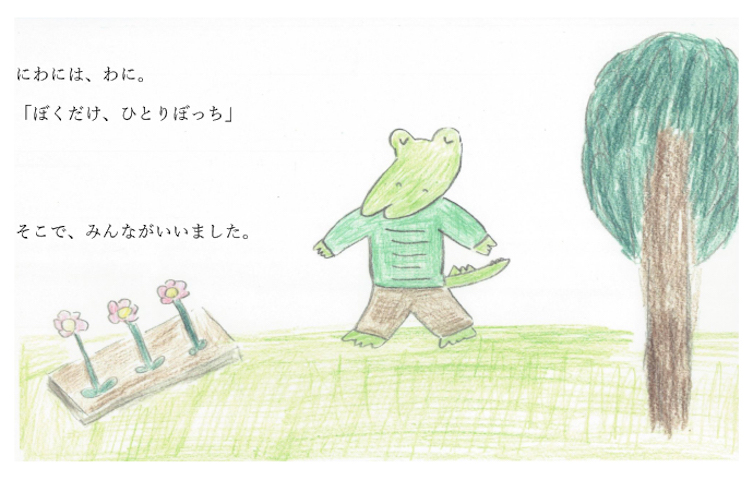 にわには、わに。
「ぼくだけ、ひとりぼっち」
そこで、みんながいいました。